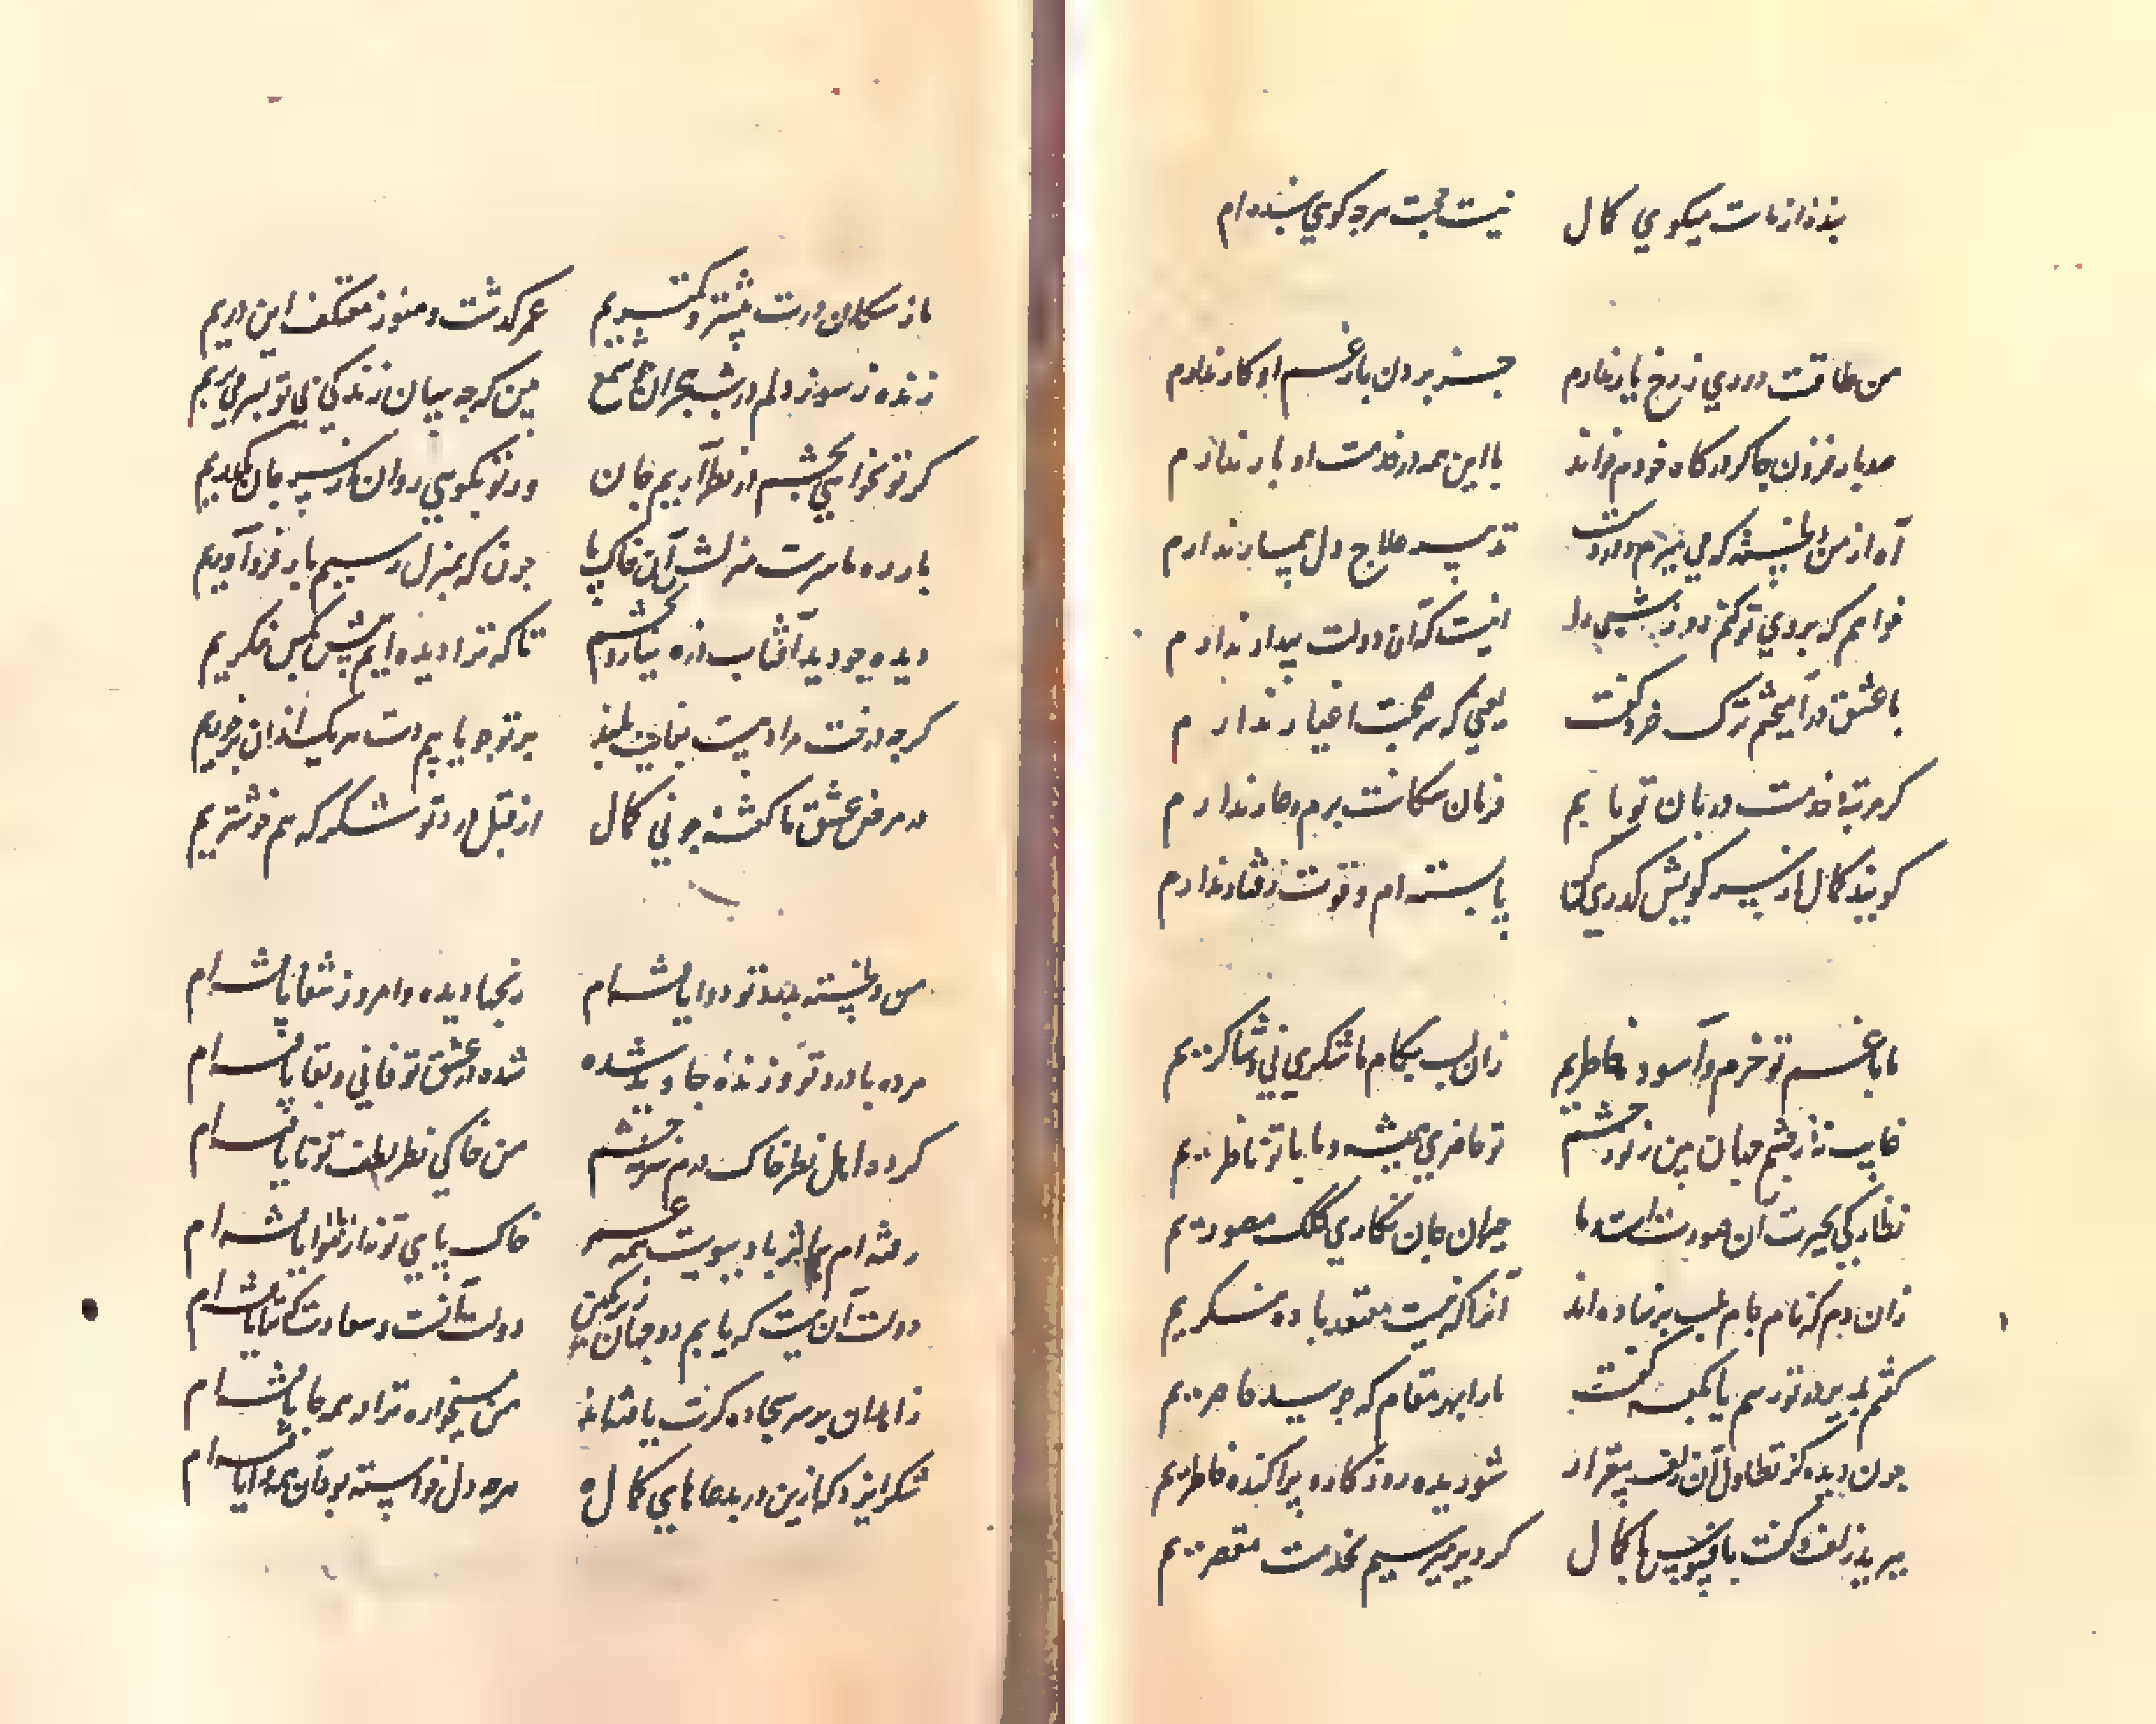 بنده از ماست میکوی کمال نیست حجت هرچه کوی بنده ام
من طاقت دوری ز رخ یار ندارم جز بردن بار غم او کار ندارم
صد بار فزون چاکر درکاه خودم خواند با این همه در خدمت او بار ندارم
آه از من دلخسته که می میرم و تدبیر علاج دل بیمار ندارم
خواهم که بروی تو کنم روز شبی را اینست که آن دولت بیدار ندارم
با عشق در آمیختم ترک خرد کفت یعنی که سر صحبت اغیار ندارم
کر مرتبه خدمت دربان تو یابم فرمان سکانت برم و عار ندارم
کویند کمال از سر کویش کذری کن پا بسته ام و قوت رفتار ندارم
ما با غم تو خرم و آسوده خاطریم زان لب بکام ما شکری نی و شاکریم
غایب نه ز چشم جهان بین ز نور چشم تو حاضری همیشه و ما با تو ناظریم
نظارکی بحیرت آن صورت است ما حیران جان نکاری کلک مصوریم
زان دم که نام جام بلب بر نهاده اند آنرا که نیست معتقد باده منکریم
کفتم بدیر در تو رسم یا بکعبه کفت ما را بهر مقام که جویید حاضریم
چون دیده کز تطاول آن زلف بیقرار شوریده روزکار و پراکنده خاطریم
ببرید زلف و کفت با کمال کو دیر میرسیم بخدمت مقصریم
ما ز سکان درت بیشتر و کمتریم عمر کذشت و هنوز معتکف این دریم
زنده ز سوز دلم در شب هجران چو شمع بین که چه سان زندکی بی تو بسر می بریم
کر تو نخواهی بچشم در نظر آریم جان ور تو بکویی روان از سر جان بکذریم
بار ره ما سرست منزلش آن خاک پا چون که بمنزل رسیم بار فرود آوریم
دیده چو دید آفتاب ذره نیارد بچشم تا که ترا دیده ایم پیش کس ننکریم
کرچه درخت مرادیست بغایت بلند بر تو چو یابیم دست هر یک از آن برخوریم
در مرض عشق ما کشته چونی کمال از قبل درد تو شکر که هم خوشتریم
من دلخسته بدرد تو دوا یافته ام رنجها دیده و امروز شفا یافته ام
مرده با درد تو و زنده جاوید شده شده در عشق تو فانی و بقا یافته ام
کرده اهل نظر خاک درم سرمه چشم من خاکی نظر لطف تو تا یافته ام
رفته ام با باد ببویت همه عمر خاک پای تو نه از باد هوا یافته ام
دولت آن نیست که یابم دو جهان زیر نکین دولت آنست و سعادت که ترا یافته ام
زاهدان بر سر سجاده کرت یافته اند من میخواره ترا در همه جا یافته ام
شکر ایزد که ازین در بدعاهای کمال هرچه دل خواسته بود آن همه را یافته ام